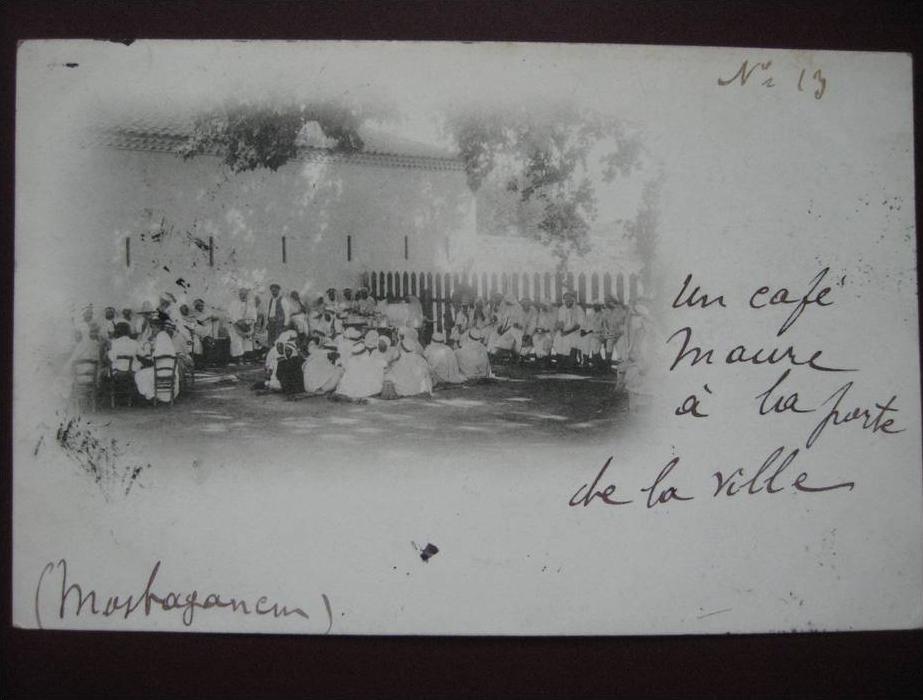 N° 13
Un café
Maure
à la porte
de la ville
(Mostaganem)